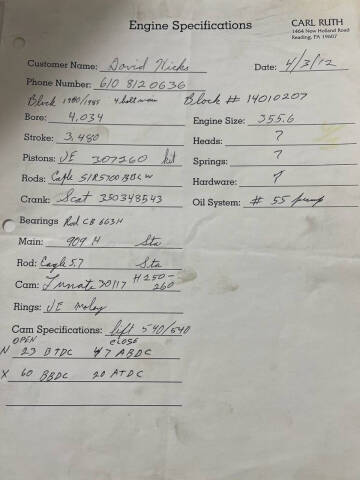 Engine Specifications
CARL RUTH
1464 New Holland Road
Reading, PA 19607
Customer Name: David Hicks
Date: 4/3/12
Phone Number: 610 812 0636
Block 1980/1985 4 bolt main Block # 14010207
Bore: 4,034
Engine Size: 355.6
Stroke: 3,480
Heads: ?
Pistons: JE 307260 kit
Springs: ?
Rods: Eagle SIR5700BBLW
Hardware: ?
Crank: Scat 350348543
Oil System: # 55 pump
Bearings Rod CB 663H
Main: 909 H Sta
Rod: Eagle 5.7 Sta
Cam: Lunati 30117 H250-260
Rings: JE Moloy
Cam Specifications: lift 540/540
OPEN CLOSE
N 23 BTDC 47 ABDC
X 60 BBDC 20 ATDC